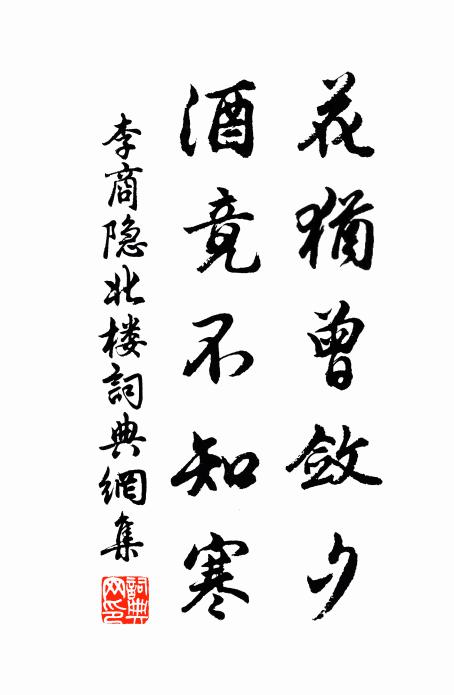 花猶曾斂夕
酒竟不知寒
李商隐北楼詞典網集
詞典網印